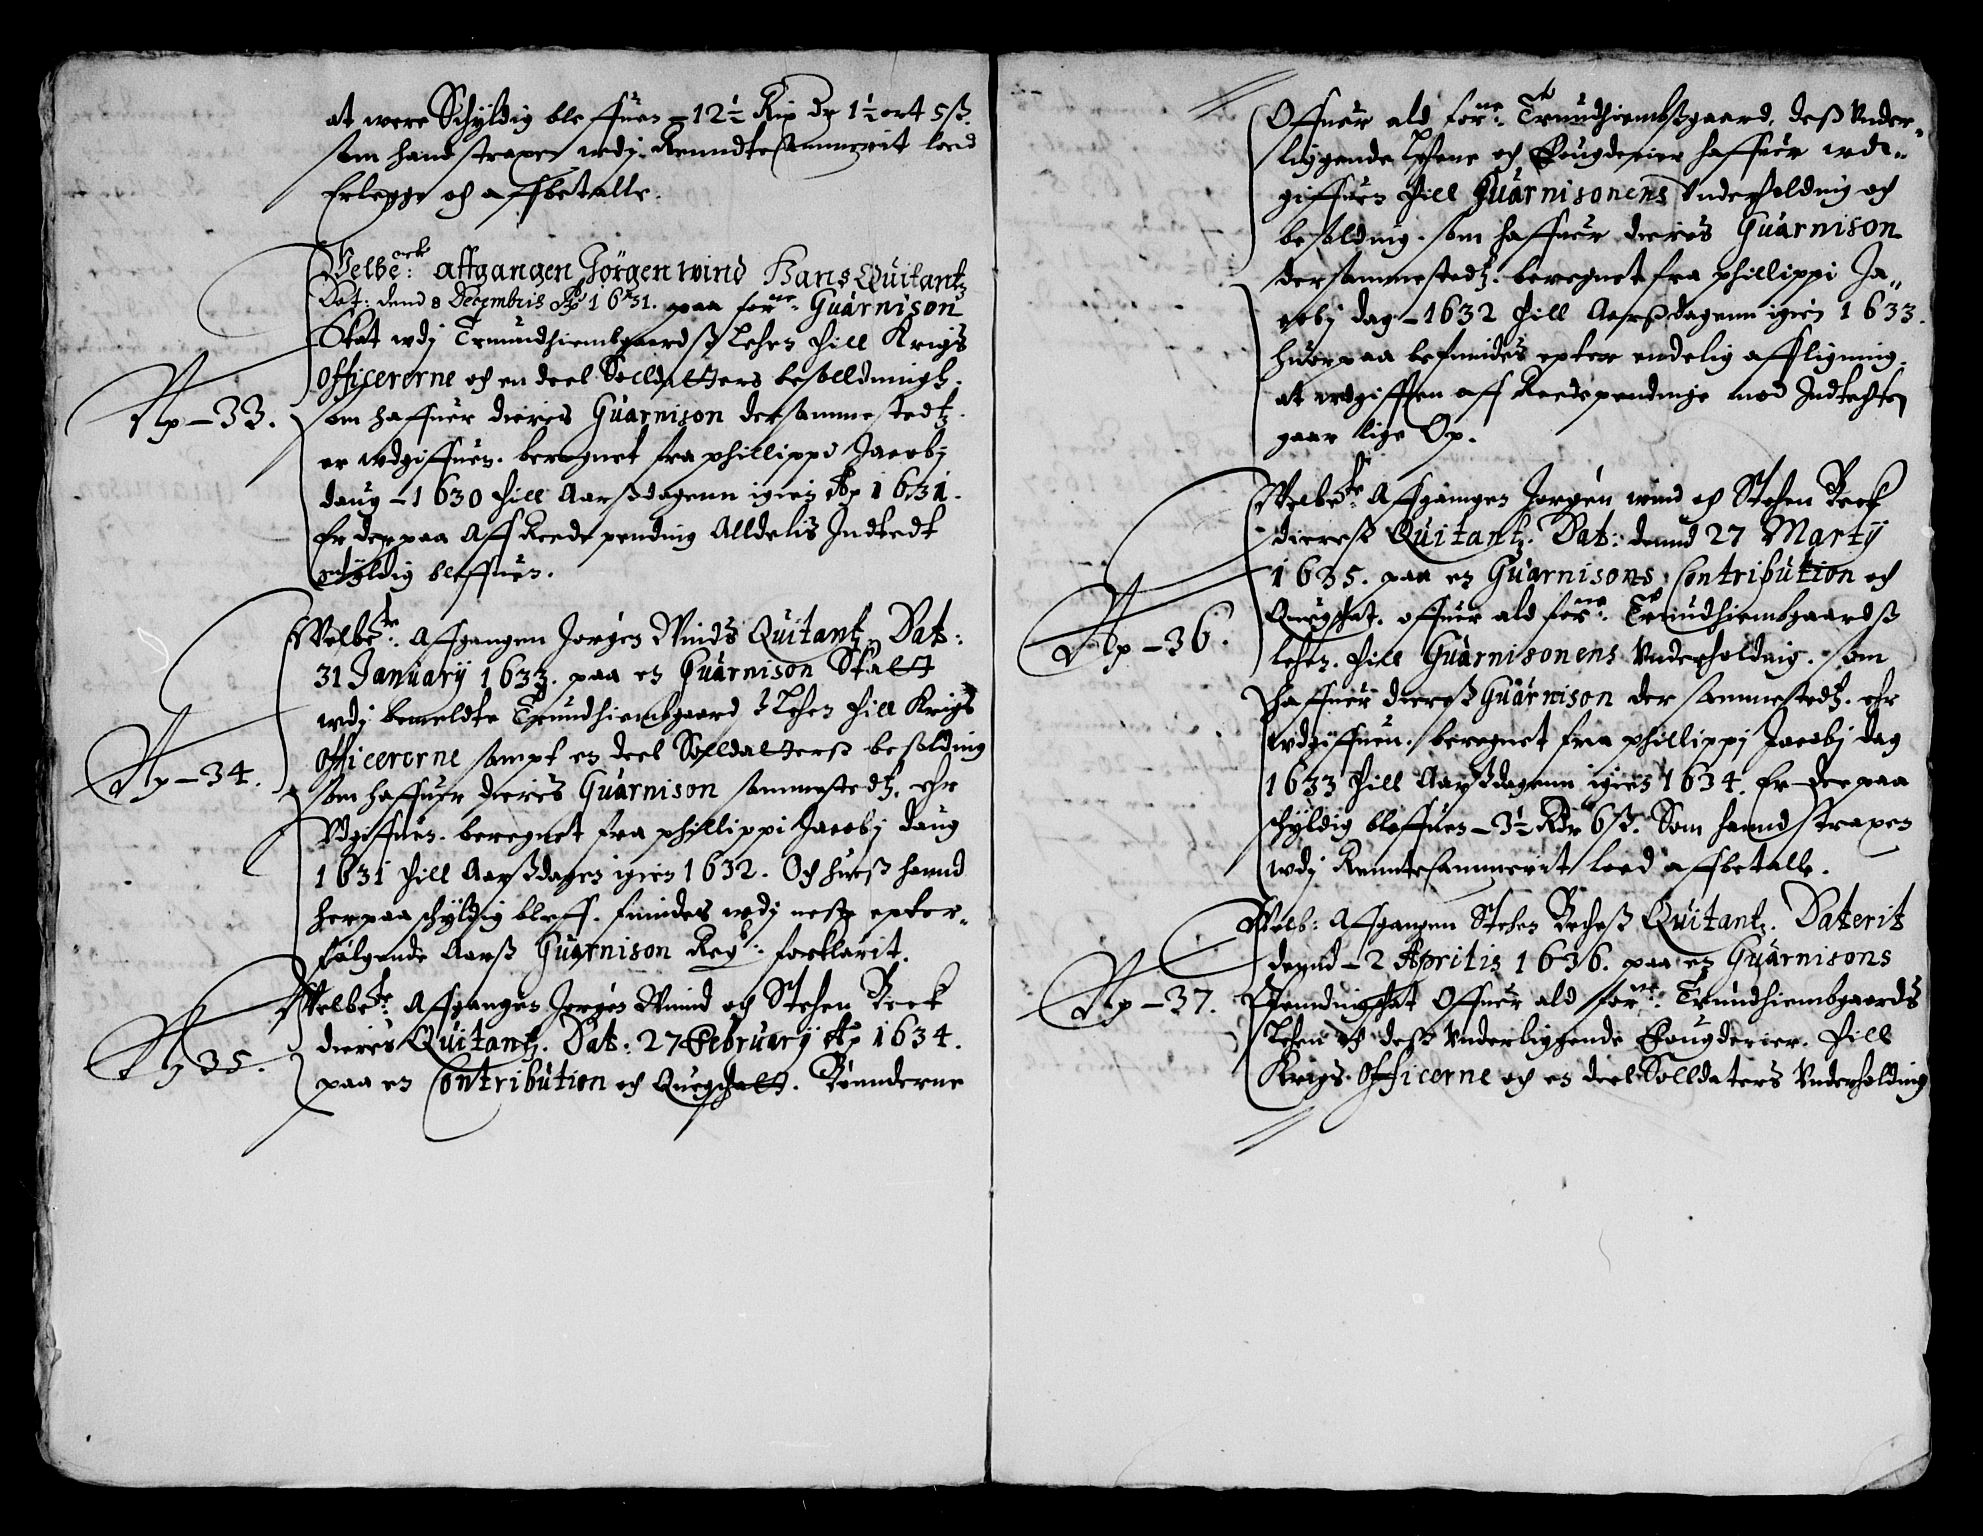 at were Schyldig bleffuen – 12½ Rix Dr 1½ ort 5 ß.
som hand straxen wdj Renndte Cammerit loed
Erlegge och affbetalle.
Velbe: affgangen Jörgen wind Hans Quitantz
Dat: dend 8 Decembris Ao 1631. paa forne: Guarnison
Skat wdj Trundhiembgaardß Lehen till Krigs
officererne och en deel Solldatters besolldningh.
No – 33. som haffuer dieris Guarnison dersammestedtz.
er wdgiffuen. beregnet fra phillippi Jacobj
daug – 1630 till Aarßdagenn igien Ao 1631.
Er derpaa Aff Reede pending Alldelis Indtedt
schyldig bleffuen.
Welbe: Affgangen Jorgen Winds Quitantz Dat:
31 January 1633. paa en Guarnison Skatt
wdj bemeldte Trundhiembgaardß Lehen till Krigs
officererne sampt en deel Solldatterß besolding
No – 34. som haffuer dieris Guarnison sammestedtz. ehr
Vdgiffuen. beregnet fra phillippi Jacobj daug
1631 till Aarßdagen igien 1632. Och hueß hannd
herpaa schyldig bleff. findes wdj neste epter-
følgende Aarß Guarnison Regb: forklarit.
Welbe: Affgangen Jorgen Wind och Stehen Beck
dieris Quitantz. Dat: 27 February Ao 1634.
No 35. paa en Contribution och Quegschatt. Bønnderne
Offuer ald forne: Trundhiembßgaard, deß Vnder-
liggende Lehene och Fougderier haffuer wd-
giffuen till Guarnisonens Vnderholdnig och
besolding. som haffuer dieris Guarnison
dersammestedtz. beregnet fra phillippi Ja-
cobj dag – 1632 till Aarßdagenn igien 1633.
huorpaa befindes epter endelig affligning.
at wdgifften aff Reedependinge mod Indtechten
gaar lige Op.
Welbe: Affgangen Jorgen wind och Stehen Beck
dieriß Quitantz. Dat: dennd 27 Marty
1635. paa en Guarnisons Contribution och
No – 36. Quegschat. offuer ald forne: Trundhiembgaardß
lehen. till Guarnisonens Vnderholdnig. som
haffuer dierß Guarnison der sammestedtz. ehr
wdgiffuen. beregnet fra phillippj Jacobj dag
1633 till Aarßdagenn igien 1634. Er der paa
schyldig bleffuen – 3½ Rdr 6 ß. Som hannd straxen
wdj Renntecammerit loed affbetalle.
Welb: Affgangen Stehen Becheß Quitantz. Daterit
dennd – 2 Aprilis 1636. paa en Guarnisons
No – 37. Penndingschat Offuer ald forne: Trundhiembgaards
Lehen och deß Vnderliggende Fougderier. till
Krigs. Officerne och en deel Solldaters Vnderholding